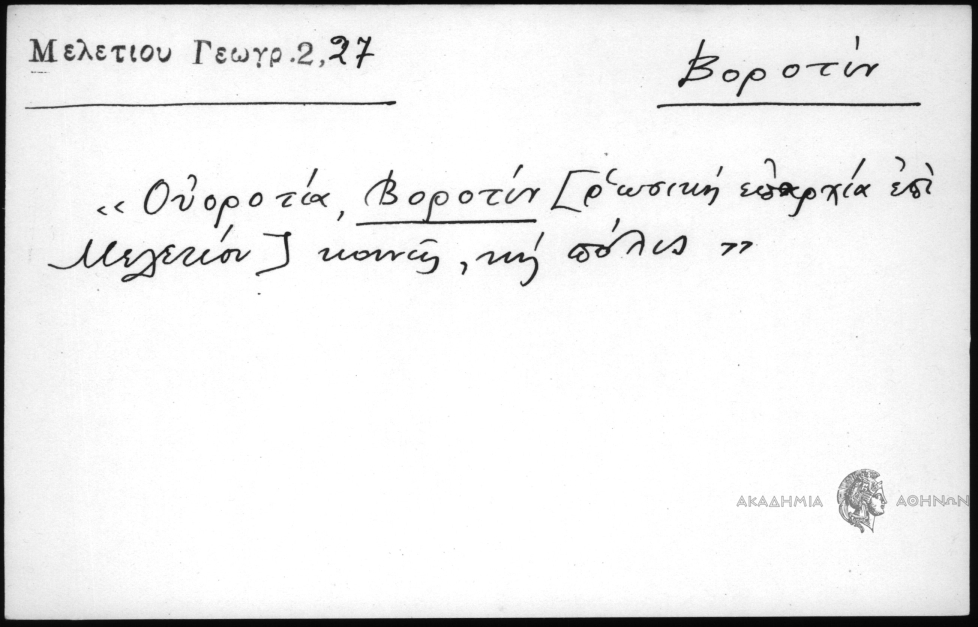 Μελετιου Γεωγρ.2,27
Βοροτίν
« Οὐοροτία, Βοροτίν [ῥωσικὴ ἐπαρχία ἐπὶ
Μελετίου] κοινῶς, καὶ πόλις »
ΑΚΑΔΗΜΙΑ ΑΘΗΝΩΝ